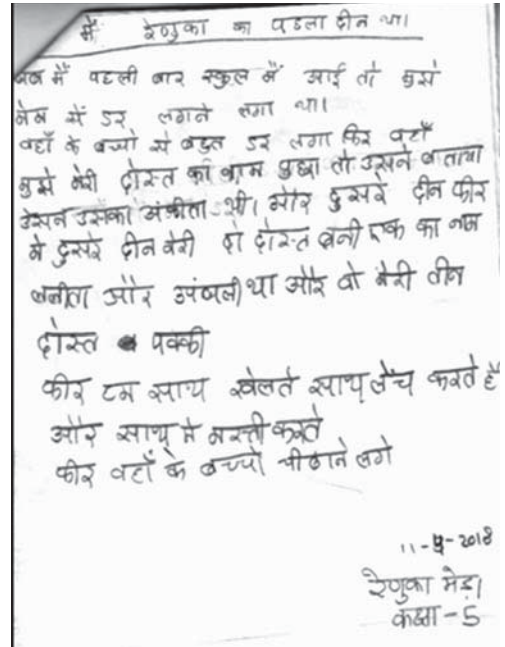 में रेणुका का पहला दीन था।
जब मैं पहली बार स्कुल में आई तो मुझे
में डर लगने लगा था।
वहाँ के बच्चो से बहुत डर लगा फिर वहाँ
मुझे मेरी दोस्त का नाम पुछा तो उसने बताया
उसने उसका अंकीता थी। और दुसरे दीन फीर
मे दुसरे दीन मेरी दो दोस्त बनी एक का नाम
बबीता और अंजली था और वो मेरी तीन
दोस्त पक्की
फीर हम साथ खेलते साथ लेंच करते हैं
और साथ मे मस्ती करते
फीर वहाँ के बच्चो चीढाने लगे
11-5-2018
रेणुका मेड़ा
कक्षा - 5